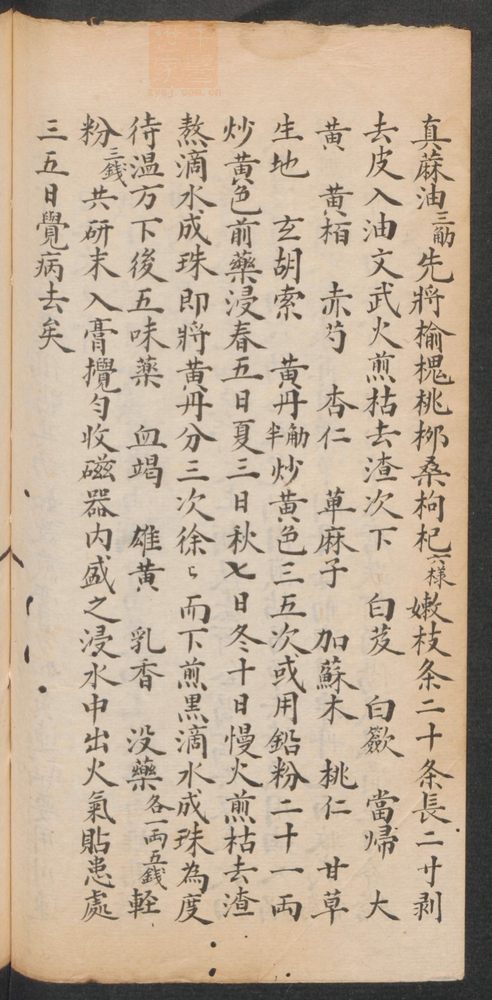 真蔴油三觔先將榆槐桃柳桑枸杞六樣嫩枝条二十条長二寸剥
去皮入油文武火煎枯去渣次下　白芨　白蘞　當歸　大
黄　黄栢　赤芍　杏仁　草麻子　加蘇木　桃仁　甘草
生地　玄胡索　黄丹半觔炒黄色三五次或用鉛粉二十一両
炒黄色前藥浸春五日夏三日秋七日冬十日慢火煎枯去渣
熬滴水成珠即將黄丹分三次徐〻而下煎黒滴水成珠為度
待温方下後五味藥　血竭　雄黄　乳香　没藥各一両五錢　軽
粉三錢共研末入膏攪匀收磁器内盛之浸水中出火氣貼患處
三五日覺病去矣